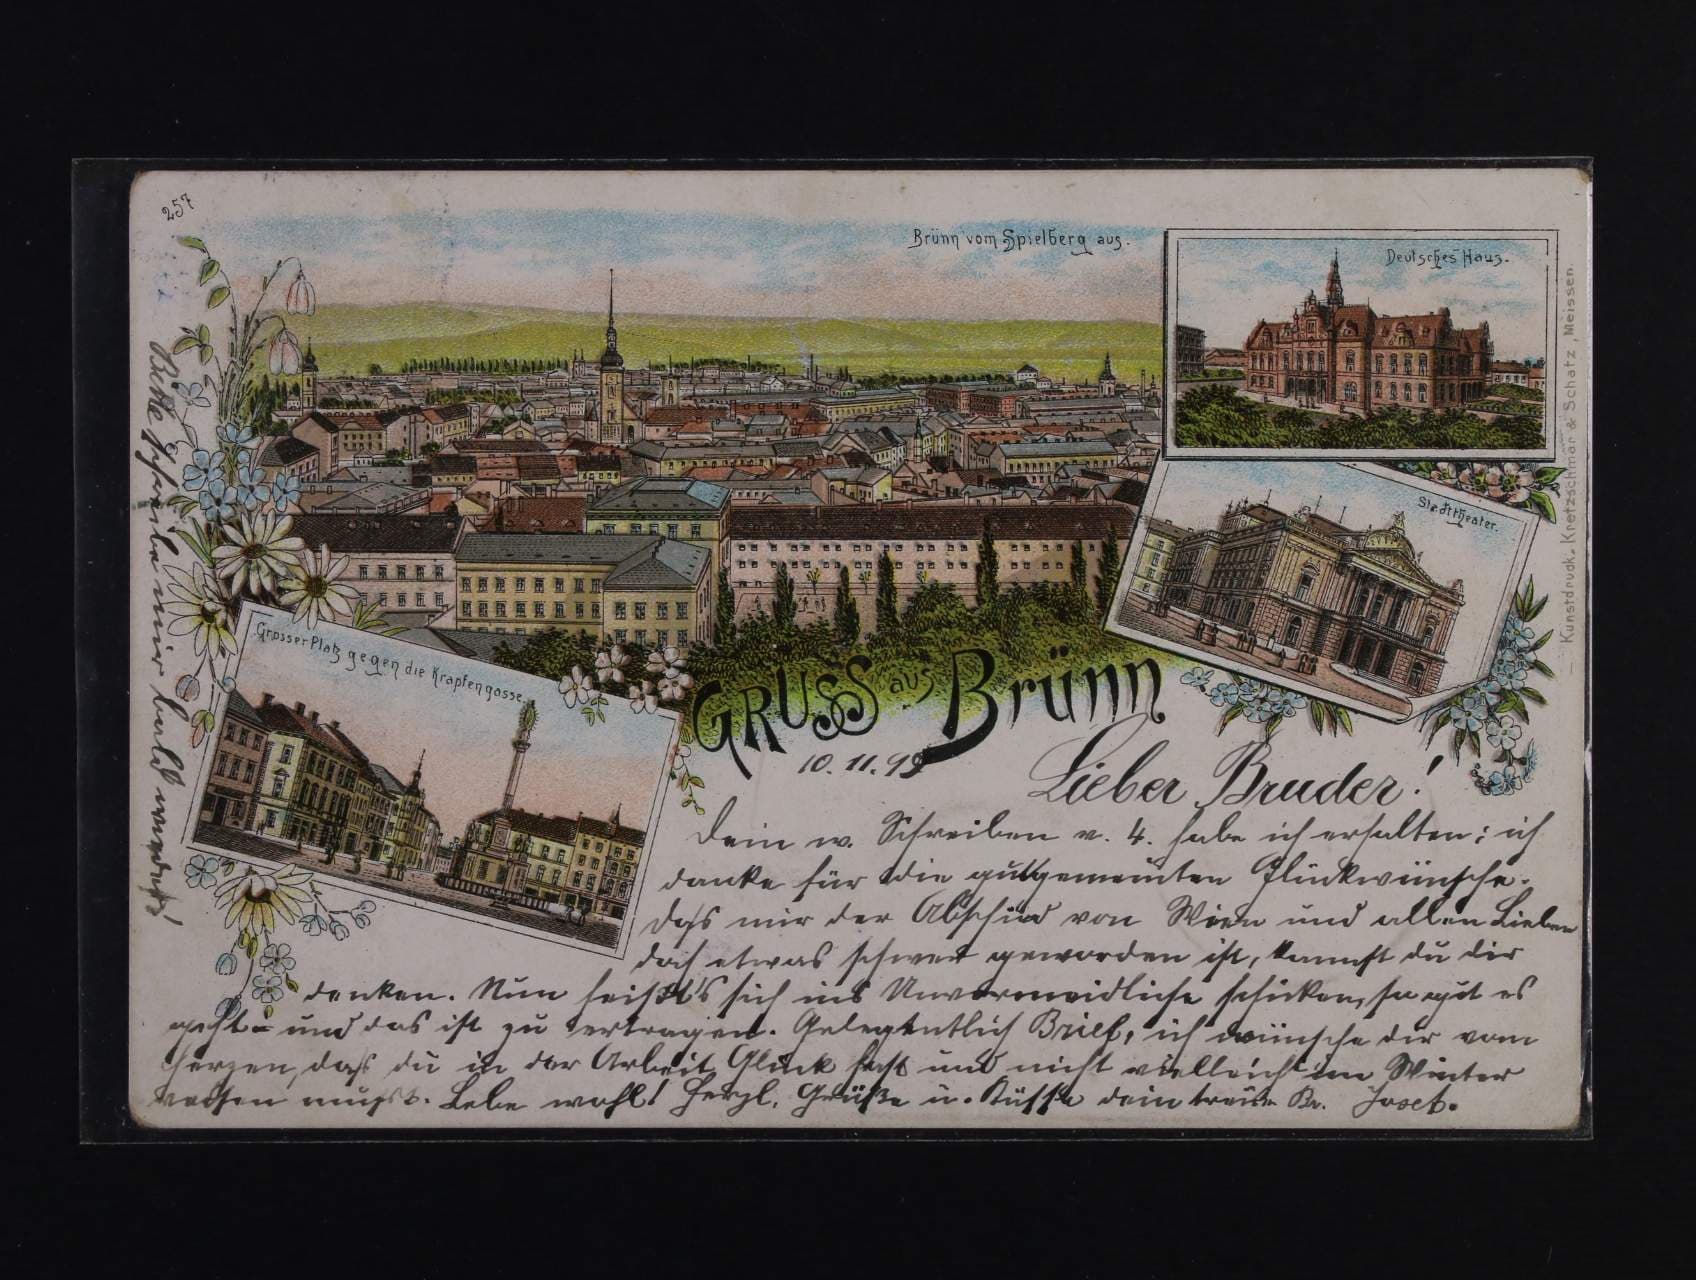 257
Brünn vom Spielberg aus.
Deutsches Haus.
Stadttheater.
Grosser Platz gegen die Krapfengasse.
Kunstdruck. Kretzschmar & Schatz, Meissen.
GRUSS aus Brünn
10.11.99
Lieber Bruder!
Dein w. Schreiben v. 4. habe ich erhalten; ich
danke für die gutgemeinten Glückwünsche.
Daß mir der Abschied von Wien und allen Lieben
doch etwas schwer geworden ist, kannst du dir
denken. Nun heißt's sich ins Unvermeidliche schicken, so gut es
geht – und das ist zu ertragen. Gelegentlich Brief, ich wünsche dir vom
Herzen, daß du in der Arbeit Glück hast und nicht vielleicht im Winter
mußt. Lebe wohl! Herzl. Grüße u. Küsse dein treuer Br. Josef.
Bitte mir bald wieder!